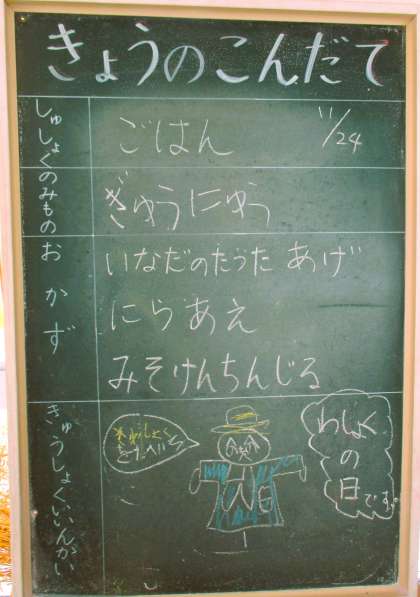 きょうのこんだて
しゅしょく
ごはん
11/24
のみもの
ぎゅうにゅう
おかず
いなだのたつたあげ
にらあえ
みそけんちんじる
きゅうしょくいいんかい
わしょく
の
日です。